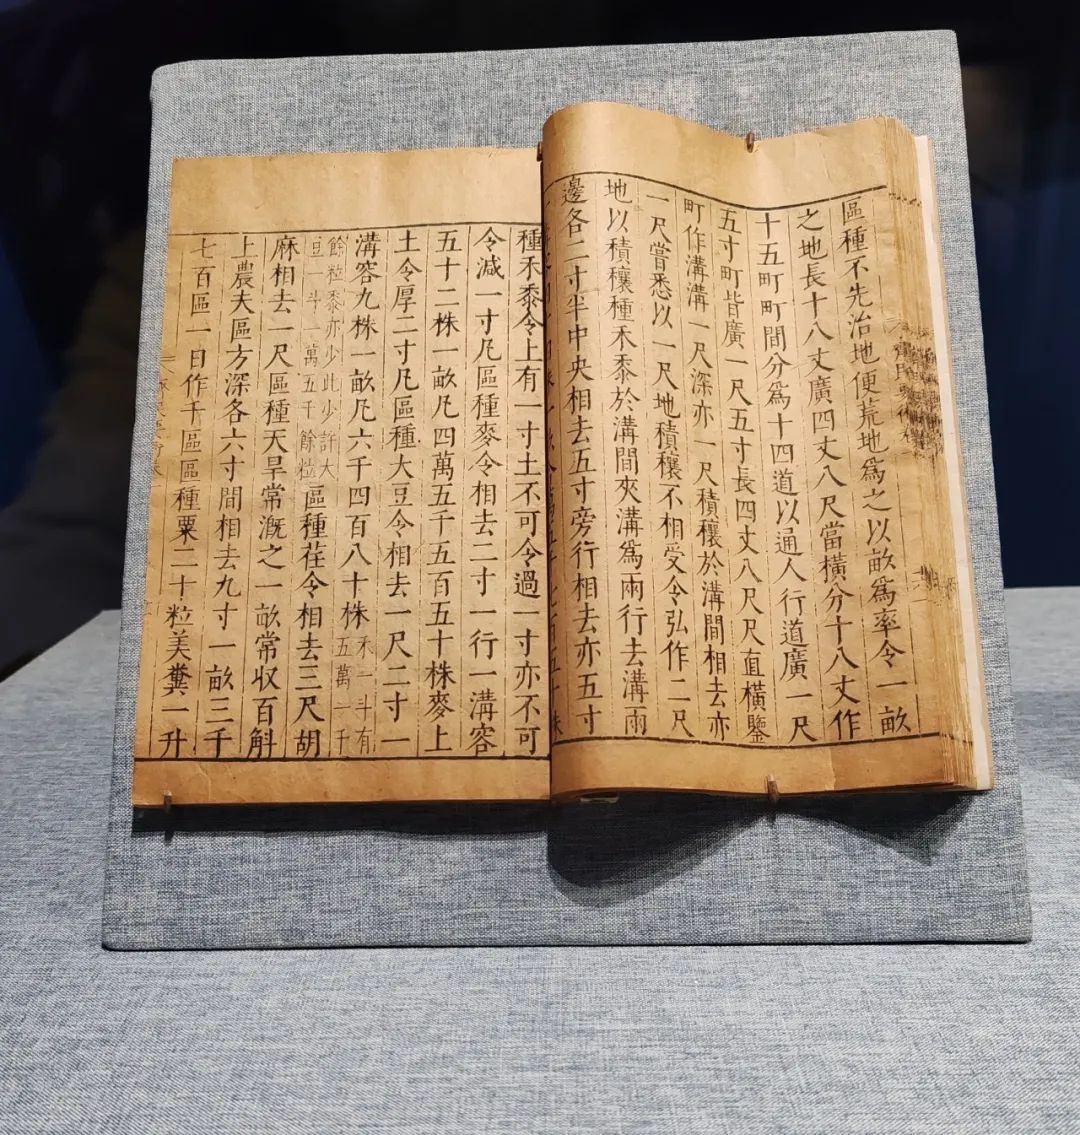 區種不先治地便荒地爲之以畝爲率令一畝
之地長十八丈廣四丈八尺當橫分十八丈作
十五町町間分爲十四道以通人行道廣一尺
五寸町皆廣一尺五寸長四丈八尺尺直橫鑒
町作溝溝一尺深亦一尺積穰於溝間相去亦
一尺嘗悉以一尺地積穰不相受令弘作二尺
地以積穰種禾黍於溝間夾溝爲兩行去溝兩
邊各二寸半中央相去五寸旁行相去亦五寸
種禾黍令上有一寸土不可令過一寸亦不可
令減一寸凡區種麥令相去二寸一行一溝容
五十二株一畝凡四萬五千五百五十株麥上
土令厚二寸凡區種大豆令相去一尺二寸一
溝容九株一畝凡六千四百八十株禾一斗有五萬一千
餘粒黍亦少此少許大豆一斗一萬五千餘粒區種荏令相去三尺胡
麻相去一尺區種天旱常溉之一畝常收百斛
上農夫區方深各六寸間相去九寸一畝三千
七百區一日作千區區種粟二十粒美糞一升